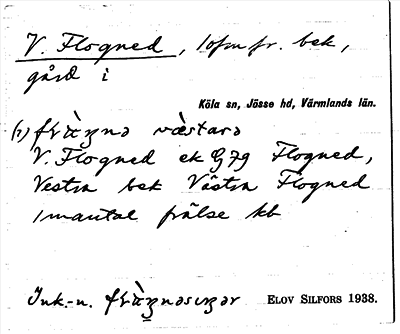 V. Flogned, 10fm fr. bek,
gård i
Köla sn, Jösse hd, Värmlands län.
(1)
V. Flogned ek G 79 Flogned,
Vestra bek Västra Flogned
1 mantal frälse kb
Ink.-n.
ELOV SILFORS 1938.